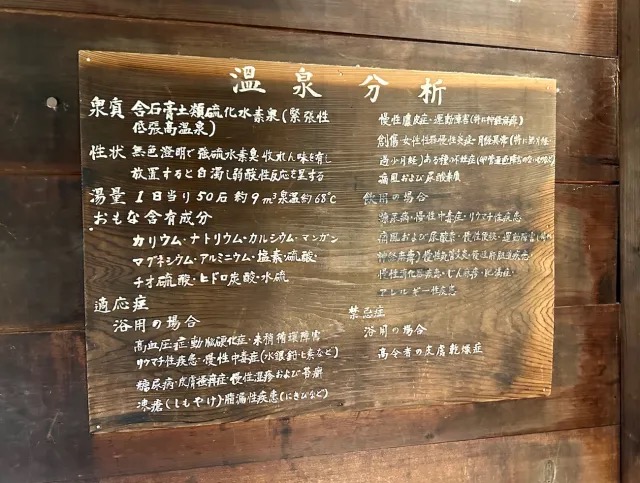 温泉分析
泉質 含石膏土類硫化水素泉(緊張性
低張高温泉)
性状 無色澄明で強硫水素臭 收れん味を有し
放置すると白濁し弱酸性反応を呈する
湯量 1日当り50石 約9m³泉温約68℃
おもな含有成分
カリウム・ナトリウム・カルシウム・マンガン
マグネシウム・アルミニウム・塩素・硫酸・
チオ硫酸・ヒドロ炭酸・水硫
適応症
浴用の場合
高血圧症動脈硬化症・末梢循環障害
リウマチ性疾患・慢性中毒症(水銀鉛・ヒ素など)
糖尿病・皮膚掻痒症・慢性湿疹および苔癬
凍瘡(しもやけ)膿漏性疾患(にきびなど)
慢性膿皮症・運動障害(特に神経麻痺)
創傷・女性性器慢性炎症・月経異常(特に
過少月経)ある種の不妊症
痛風および尿酸素質
飲用の場合
糖尿病・慢性中毒症・リウマチ性疾患
痛風および尿酸素・慢性便秘・運動障害
神経麻痺)慢性気管支炎・
慢性消化器疾患・じん麻疹・
アレルギー性疾患
禁忌症
浴用の場合
高令者の皮膚乾燥症